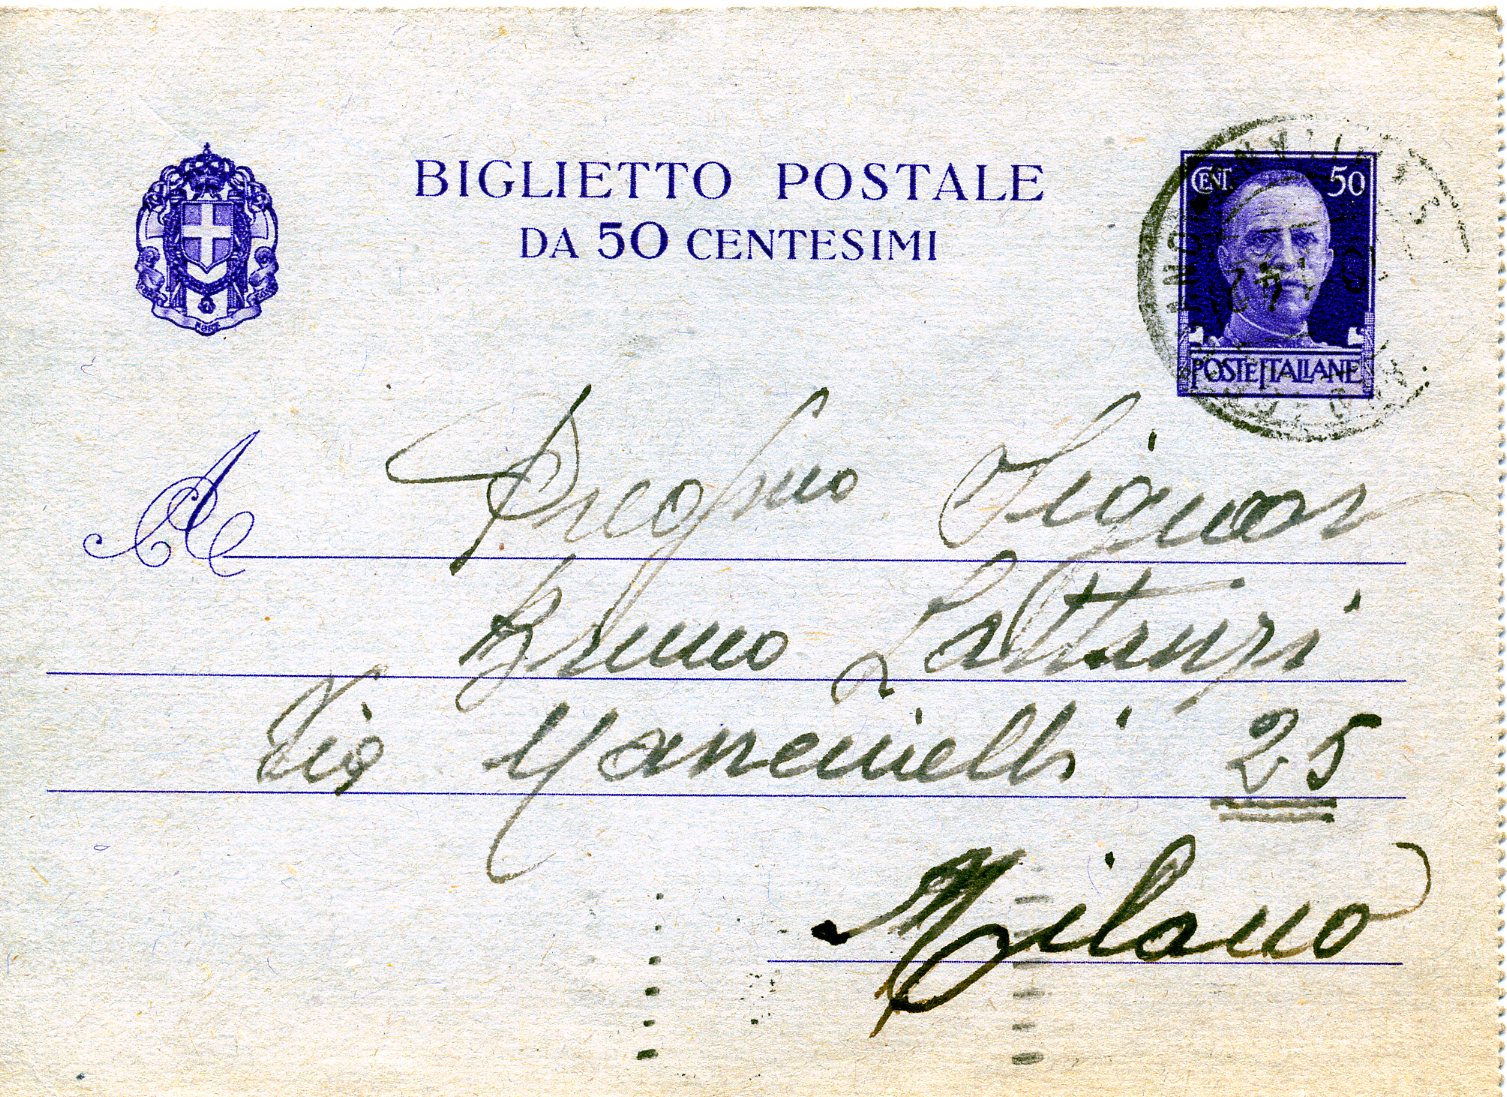 BIGLIETTO POSTALE
DA 50 CENTESIMI
CENT. 50
POSTE ITALIANE
A Preg/mo Signor
Bruno Lattanzi
Via Mancinelli 25
Milano